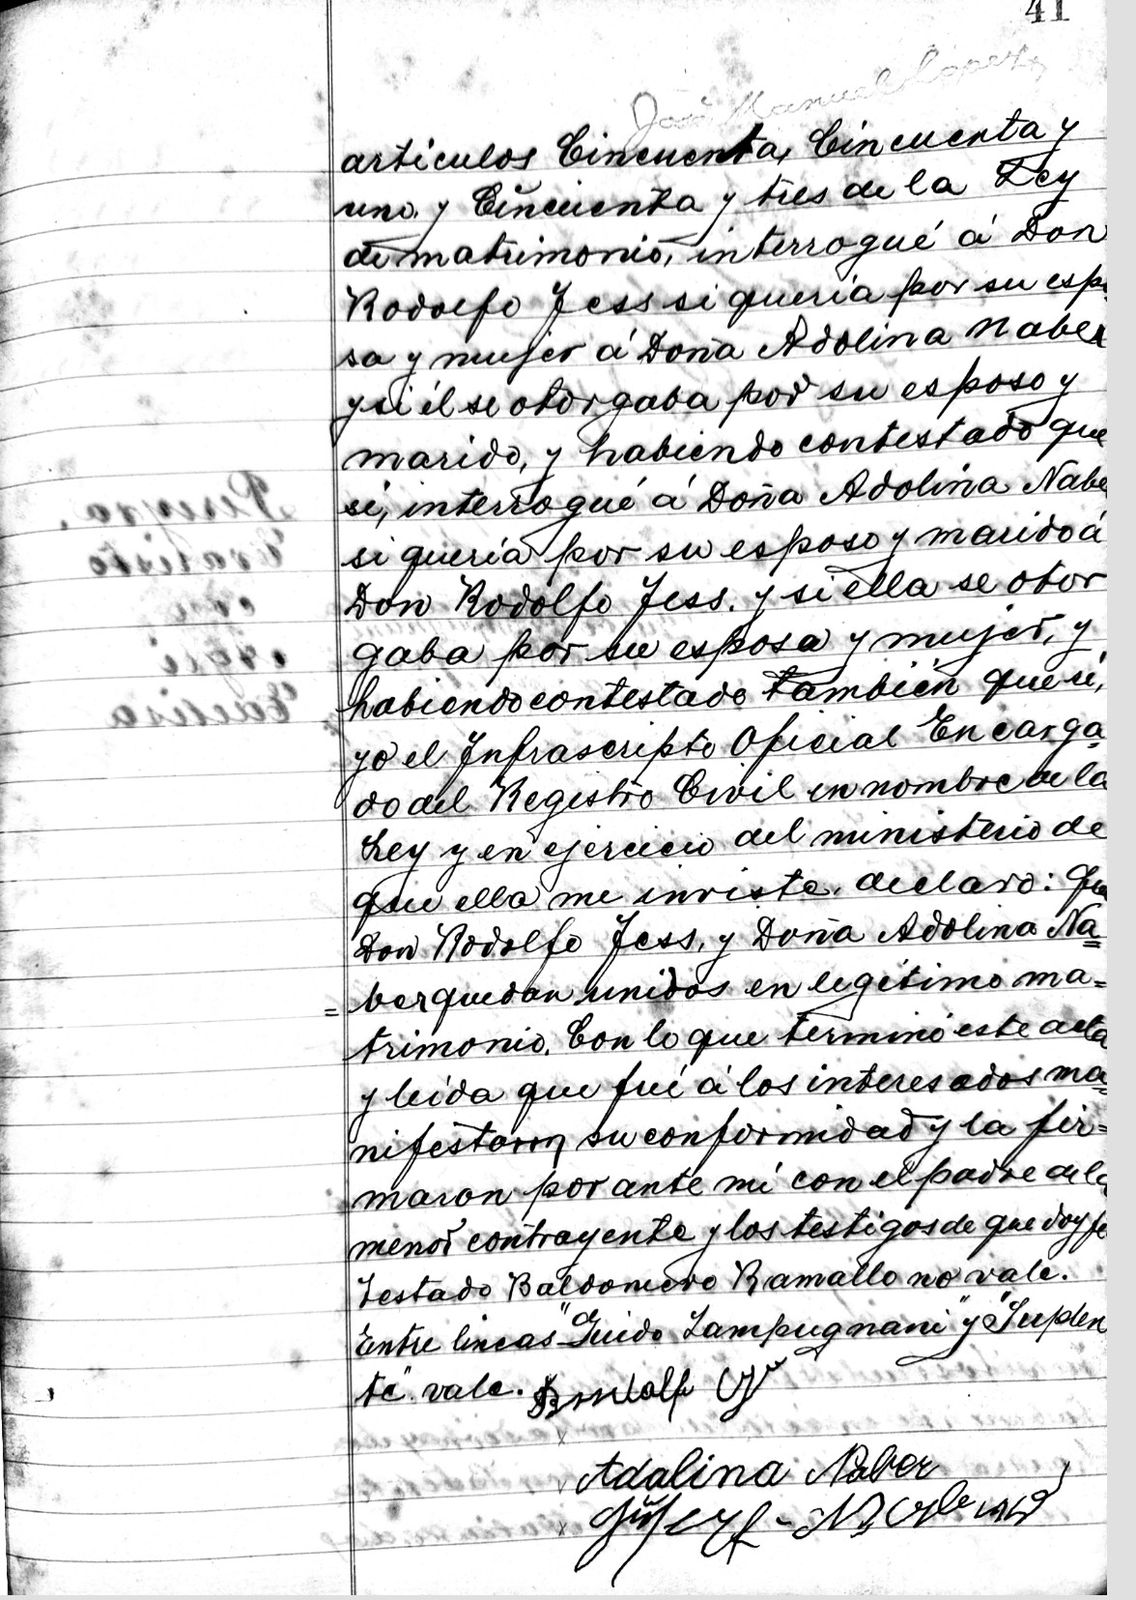 41
José Manuel Lopez
artículos Cincuenta, Cincuenta y
uno, y Cincuenta y tres de la Ley
de matrimonio, interrogué á Don
Rodolfo Jess si quería por su espo
sa y mujer á Doña Adolina Naber
y si él se otorgaba por su esposo y
marido, y habiendo contestado que
sí, interrogué á Doña Adolina Nabe
si quería por su esposo y marido á
Don Rodolfo Jess, y si ella se otor
gaba por su esposa y mujer, y
habiendo contestado también que sí,
yo el Infrascripto Oficial Encarga
do del Registro Civil en nombre de la
Ley y en ejercicio del ministerio de
que ella me inviste, declaro: Que
Don Rodolfo Jess, y Doña Adolina Na=
=ber quedan unidos en legítimo ma=
trimonio. Con lo que terminó este acta
y leída que fué á los interesados ma=
nifestaron su conformidad y la fir=
maron por ante mí con el padre de la
menor contrayente y los testigos de que doy fe
Testado Baldomero Ramallo no vale.
Entre lineas "Guido Lampugnani" y "Suplen
te" vale.
Adalina Naber